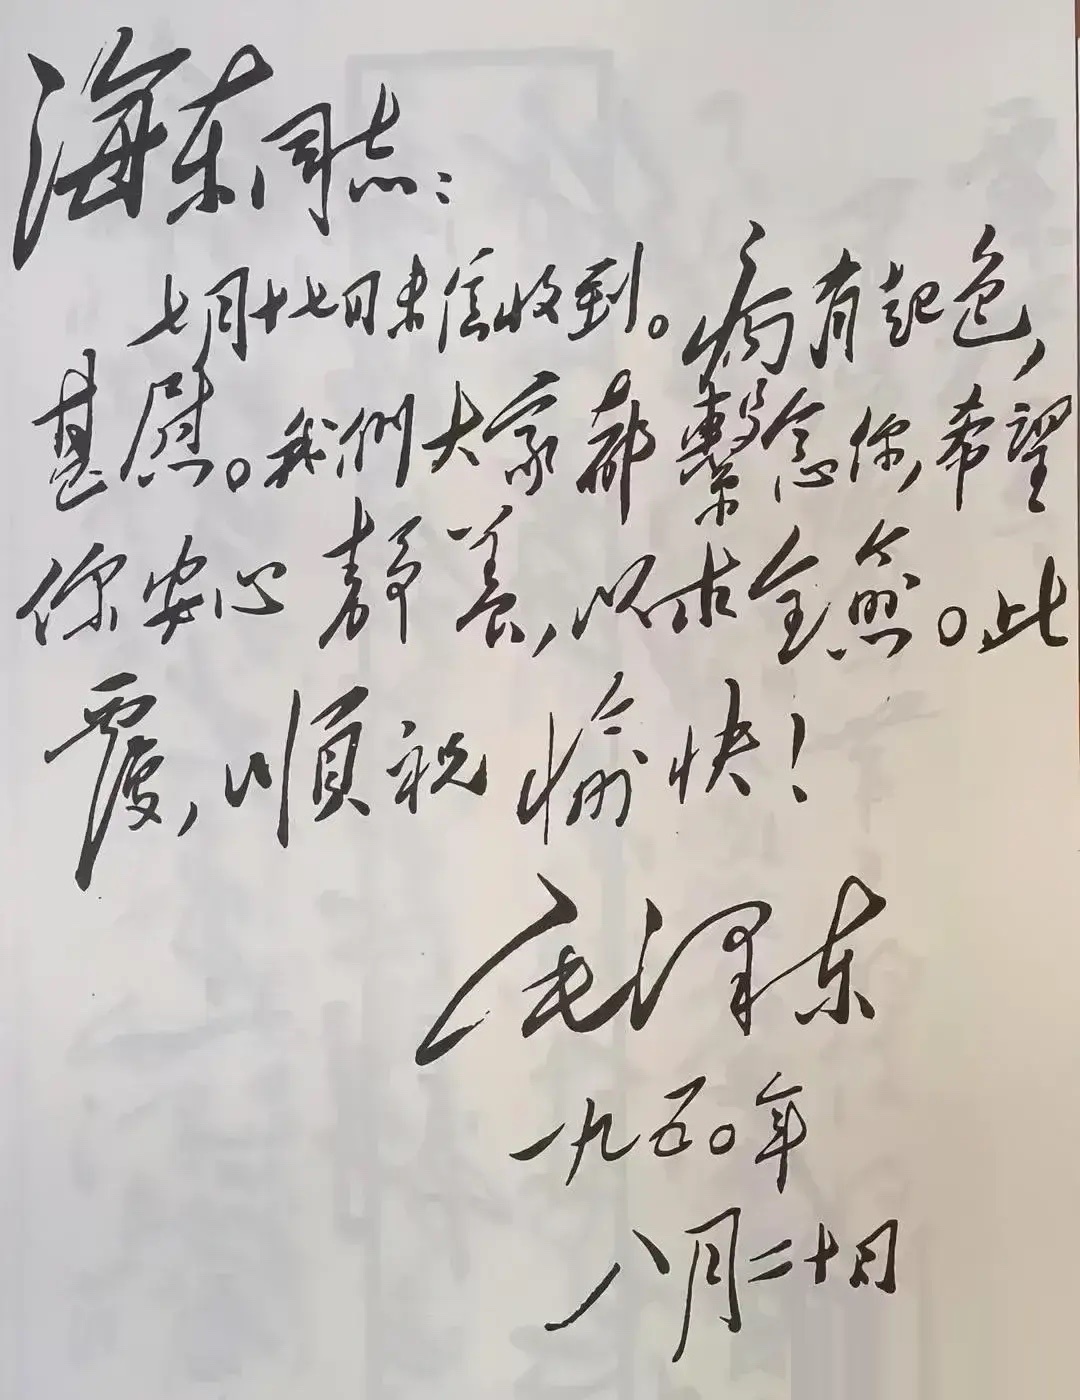 海东同志：
七月十七日来信收到。病有起色，
甚慰。我们大家都繫念你，希望
你安心静養，以求全愈。此
覆，順祝愉快！
毛泽东
一九五〇年
八月二十日